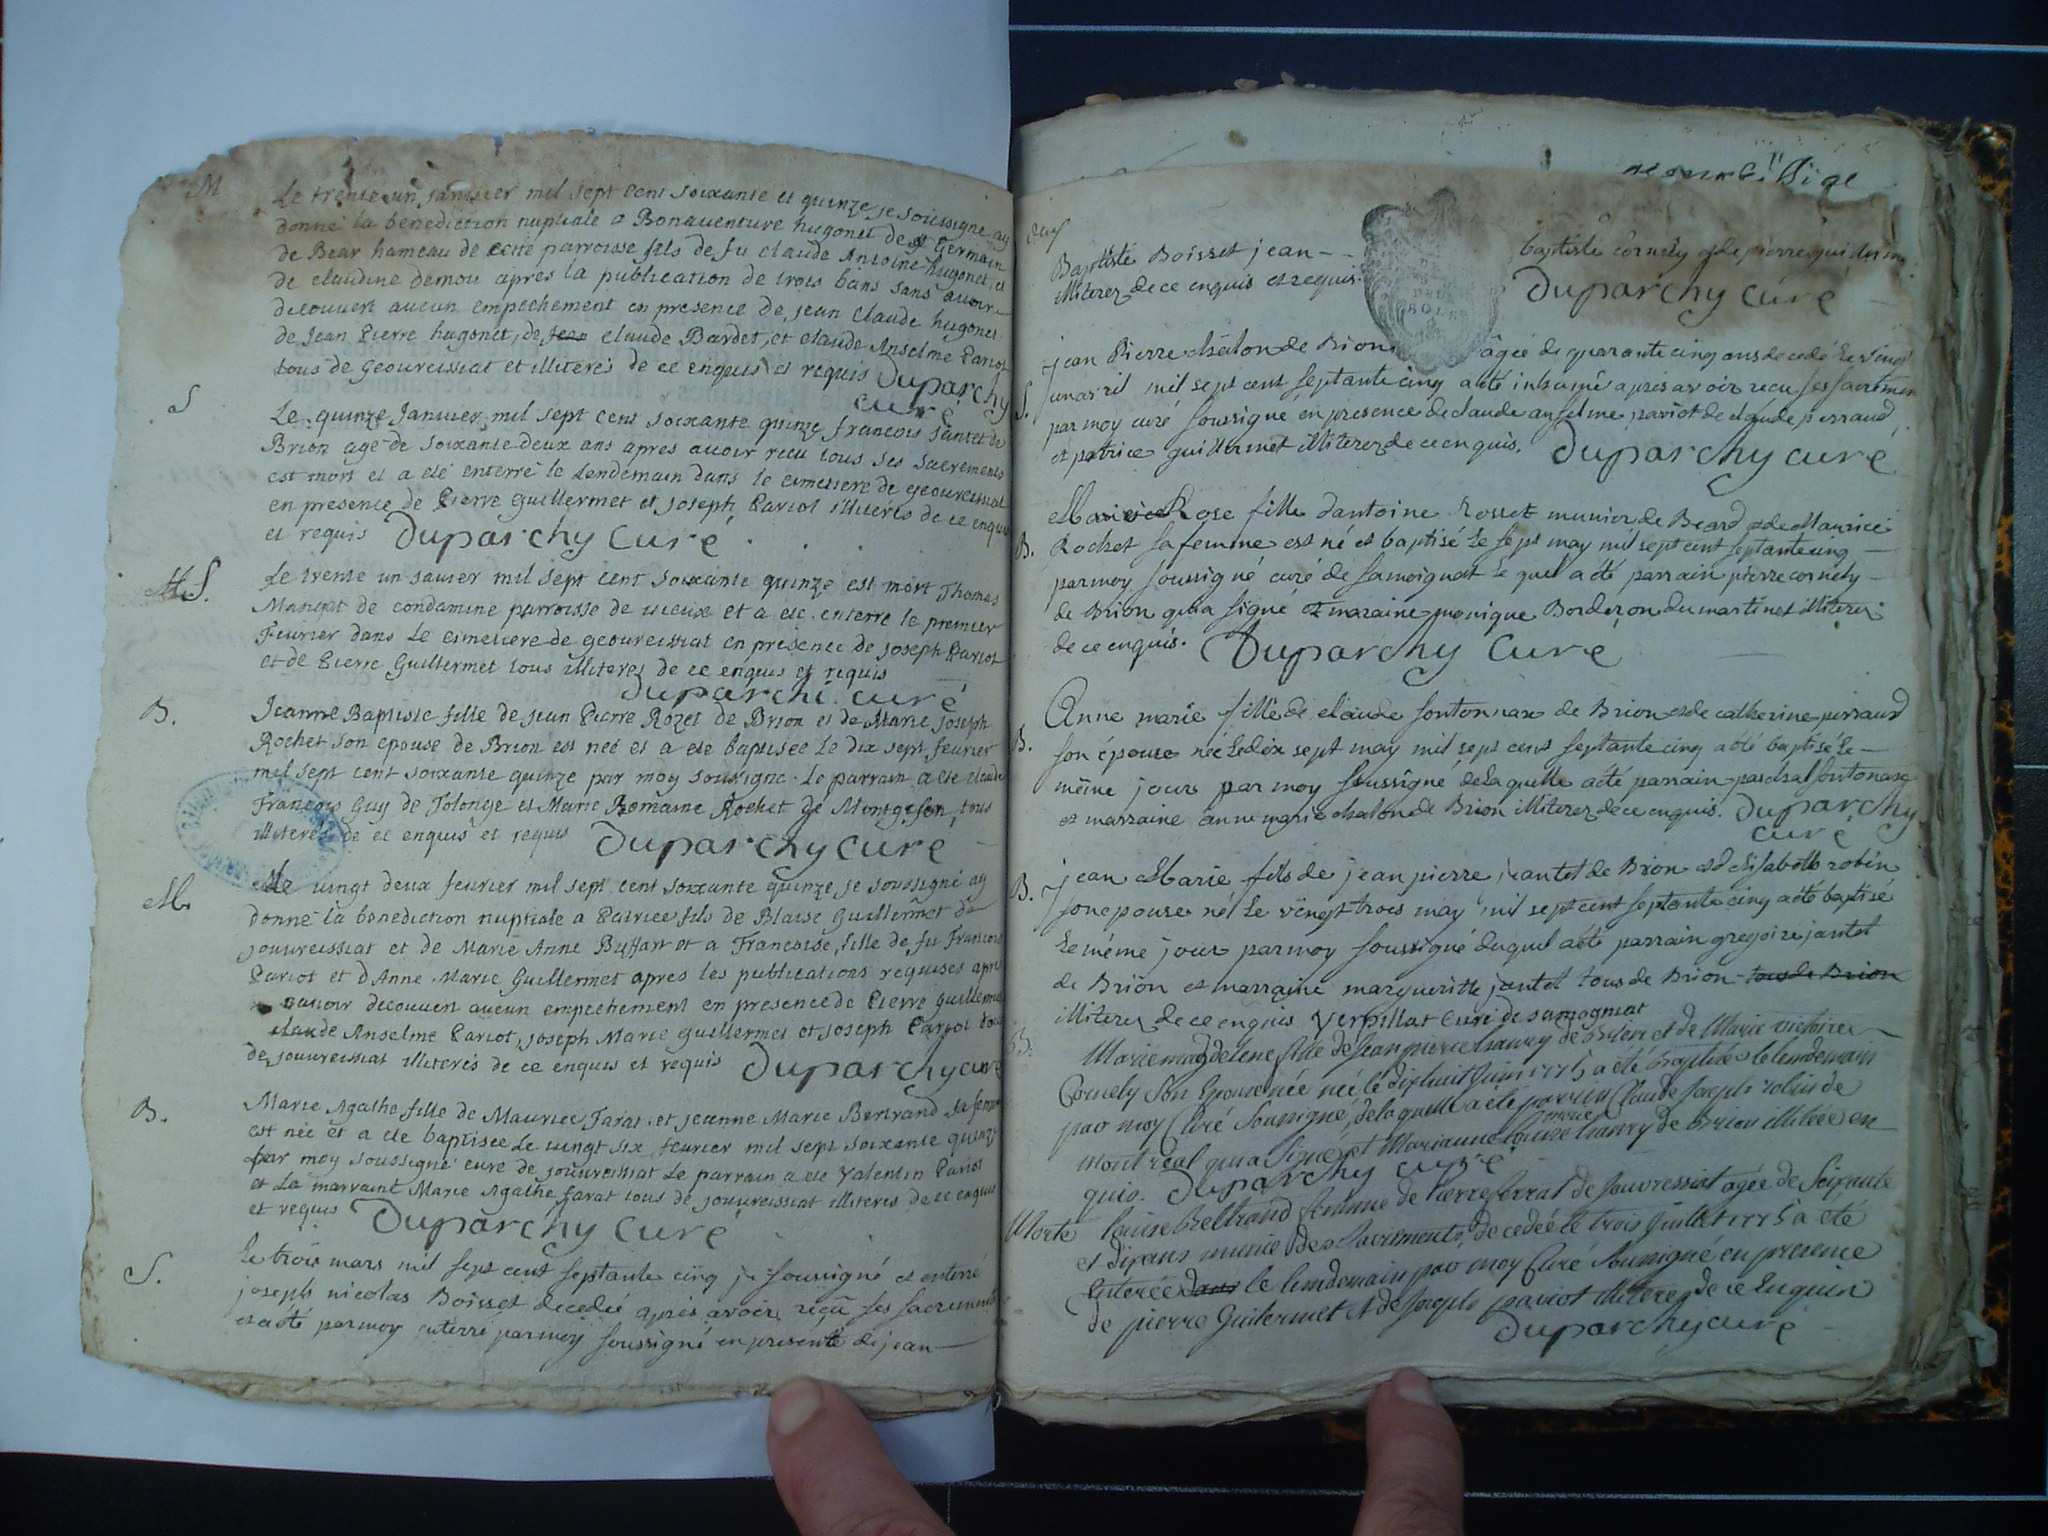 M
Le trente un janvier mil sept cent soixante et quinze je soussigné ay
donné la benediction nuptiale a Bonaventure hugonet de st Germain
de Bear hameau de cette parroisse fils de fu claude Antoine hugonet et
de claudine demou apres la publication de trois bans sans avoir
decouvert aucun empechement en presence de jean claude hugonet
de Jean Pierre hugonet, de claude Bardet, et claude Anselme Pariot
tous de Geovreissiat et illiterés de ce enquis et requis Duparchy
curé
S
Le quinze Janvier mil sept cent soixante quinze francois Jantet de
Brion age de soixante deux ans apres avoir recu tous ses sacrements
est mort et a eté enterré le lendemain dans le cimetiere de geovreissiat
en presence de Pierre Guillermet et joseph Pariot illiterés de ce enquis
et requis Duparchy Curé
M.S.
Le trente un janvier mil sept cent soixante quinze est mort Thomas
de condamine parroisse de vieux et a eté enterré le premier
Fevrier dans le cimetiere de geovreissiat en presence de joseph Pariot
et de Pierre Guillermet tous illiterez de ce enquis et requis
duparchi curé
B.
Jeanne Baptiste fille de jean Pierre Rozet de Brion et de Marie joseph
Rochet son epouse de Brion est neé et a ete baptisée le dix sept fevrier
mil sept cent soixante quinze par moy soussigné. Le parrain a ete claude
François Guy de Tolonge et Marie Romaine Rochet de Montgefon, tous
illiterés de ce enquis et requis Duparchy curé
M.
Le vingt deux fevrier mil sept cent soixante quinze, je soussigné ay
donné la benediction nuptiale a Patrice fils de Blaise Guillermet de
jouvreissiat et de Marie Anne Buffart et a Francoise, fille de fu Francois
Pariot et d'Anne Marie Guillermet apres les publications requises apres
navoir decouvert aucun empechement en presence de Pierre guillermet
claude Anselme Pariot, joseph Marie Guillermet et joseph Pariot tous
de jouvreissiat illiterés de ce enquis et requis Duparchy curé
B.
Marie Agathe fille de Maurice Farat et jeanne Marie Bertrand sa femme
est née et a ete baptisée le vingt six fevrier mil sept soixante quinze
par moy soussigné curé de jouvreissiat le parrain a ete valentin Pariot
et la marraine Marie Agathe farat tous de jouvreissiat illiterés de ce enquis
et requis Duparchy Curé
S.
Le trois mars mil sept cent septante cinq je soussigné et enterré
joseph nicolas Boisset decedé après avoir reçu ses sacrements
et a été par moy enterré par moy soussigné en presente de jean
Baptiste Boisset jean
illiterez de ce enquis et requis.
baptiste cornely et de pierre
Duparchy Curé
S.
jean Pierre chalon de Brion âgée de quarante cinq ans decedé le vingt
un avril mil sept cent septante cinq a été inhumé après avoir reçu ses sacremen
par moy curé soussigné en presence de claude anselme pariot de claude perraud
et patrice guillermet illiterez de ce enquis. Duparchy curé
B.
Marie Rose fille dantoine Rosset munier de Beard et de Maurice
Rochet sa femme est né et baptisé le sept may mil sept cent septante cinq
par moy soussigné curé de Samoignat le quel a été parrain pierre cornely
de Brion qui a signé et maraine monique Borderon du martinet illiterez
de ce enquis. Duparchy Curé
B.
Anne marie fille de claude fontonnax de Brion et de catherine perraud
son épouse née le dix sept may mil sept cent septante cinq a été baptisé le
même jour par moy soussigné, de la quelle a été parrain paschal fontonax
et marraine anne marie chalon de Brion illiterez de ce enquis. Duparchy
curé
B.
jean Marie fils de jean pierre jantet de Brion et d'elisabeth robin
son epouse né le vingt trois may mil sept cent septante cinq a été baptisé
le même jour par moy soussigné duquel a été parrain gregoire jantet
de Brion et marraine margueritte jantet tous de Brion tous de Brion
illiterez de ce enquis Verpillat Curé de samogniat
B.
Marie magdelene fille de jean pierre de Brion et de Marie victoire
Cornely son Epouse née née, le dixhuit Juin 1775 a été baptisée le lendemain
par moy Curé soussigné, de la quelle a été parrain Claude Joseph robin de
montreal qui a signé et Marianne Louise de Brion illitéée en
quis. Duparchy curé
Morte
Louise Beltrand femme de Pierre ferrat de jouvressiat agée de Soixante
et dix ans munie des Sacrements, decedée le trois juillet 1775 a été
Enterée dans le lendemain par moy Curé Soussigné en presence
de pierre Guilermet et de Joseph pariot illiteres de ce Enquis
Duparchy curé